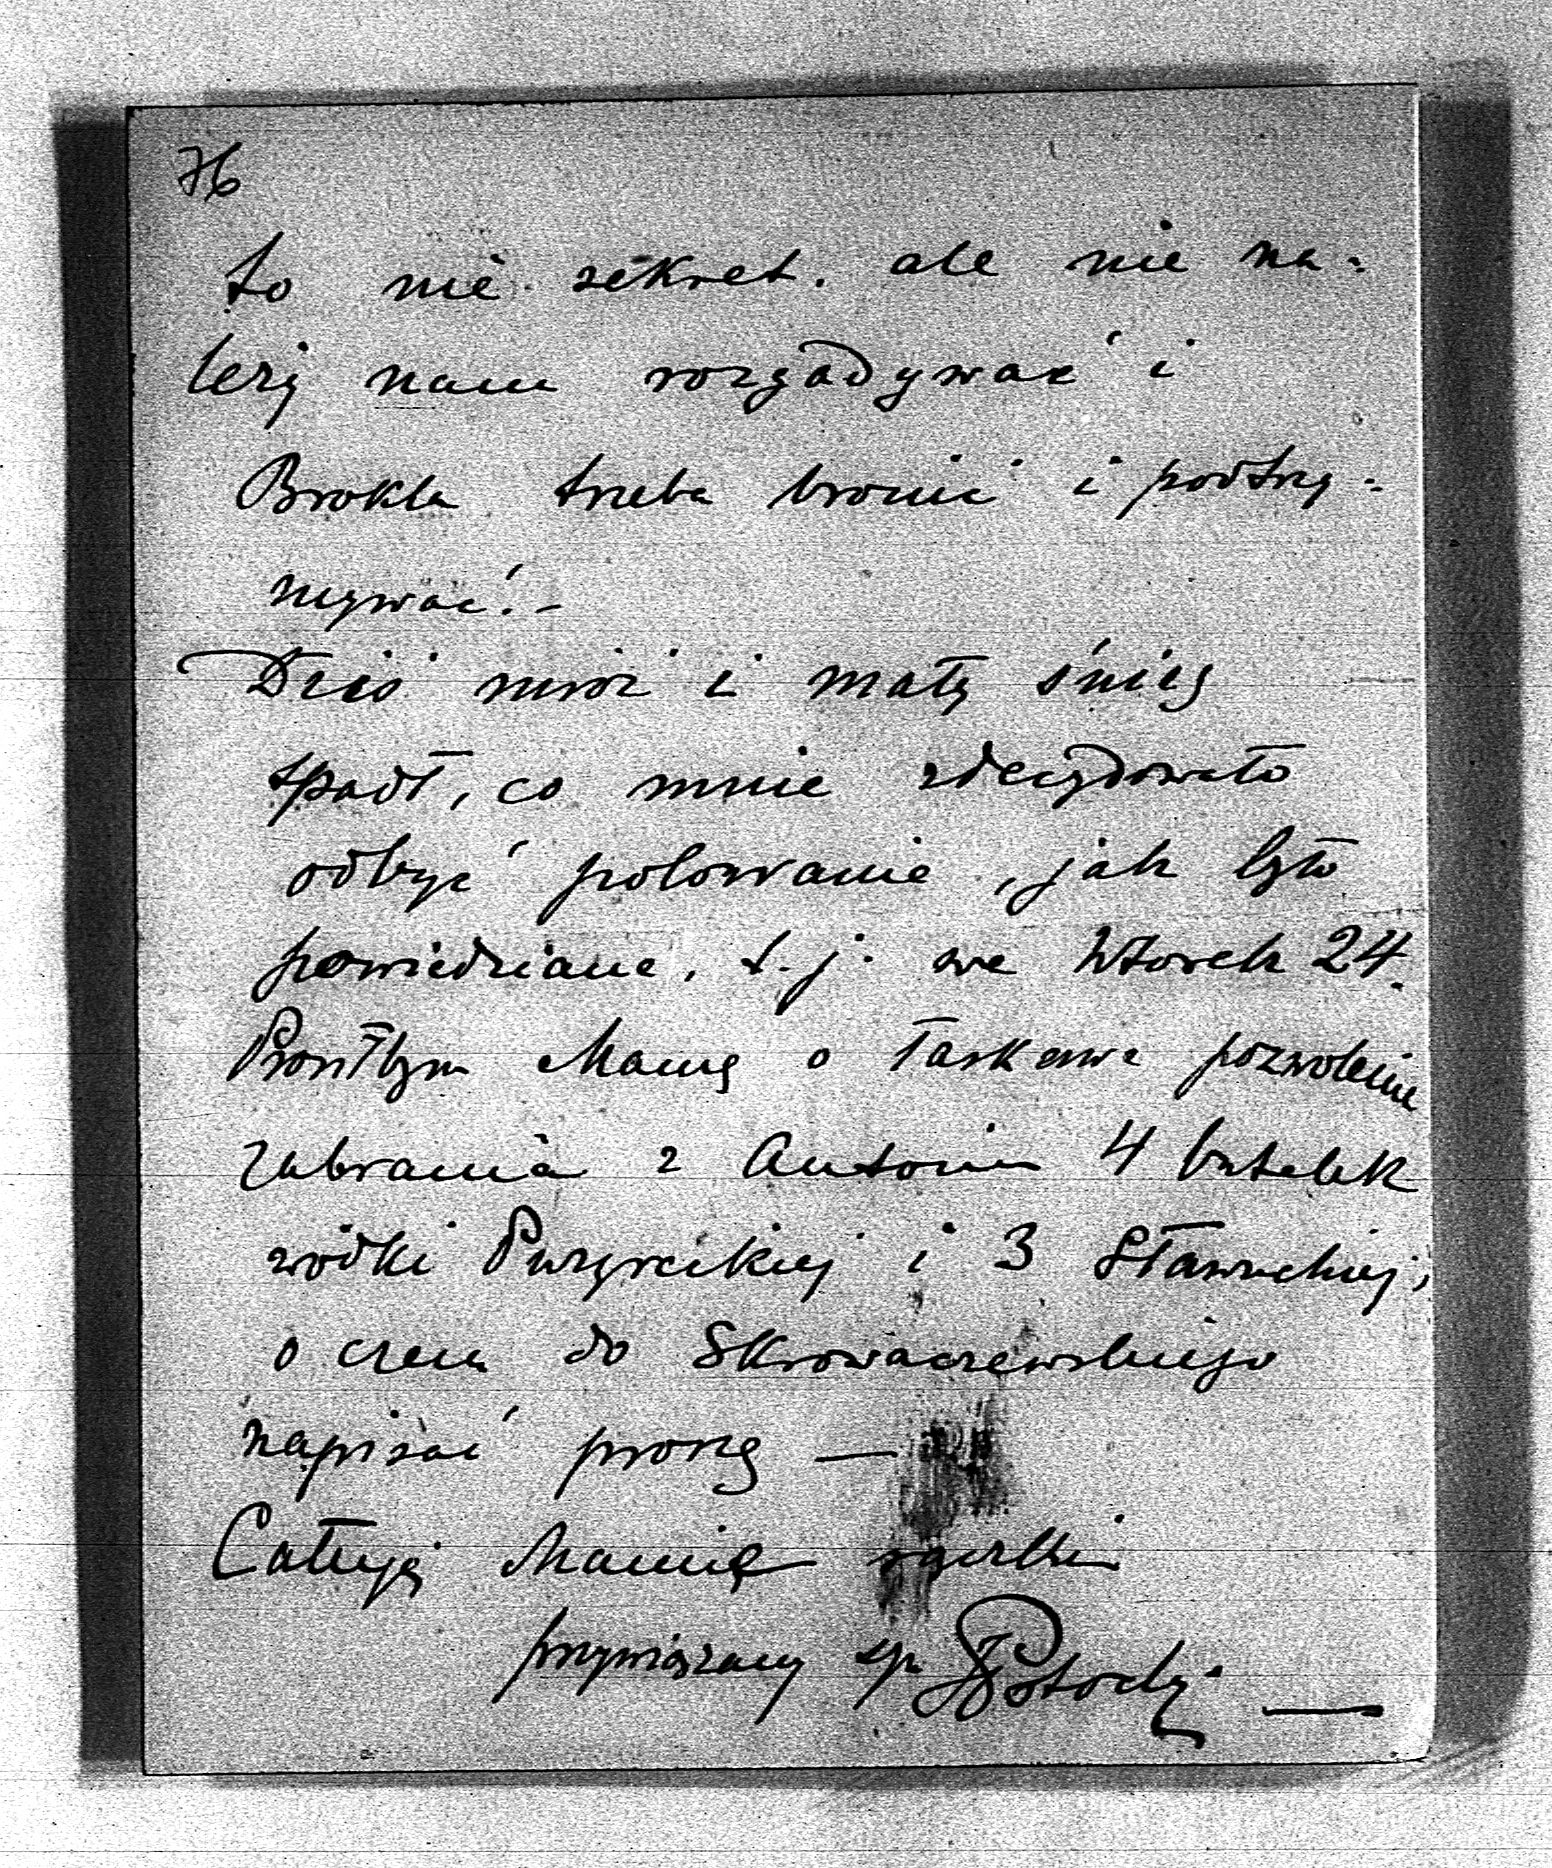 76
to nie sekret. ale nie na-
leży nam rozgadywać i
Brokla trzeba bronić i podtrzy-
mywać! -
Dziś mróz i mały śnieg
spadł, co mnie zdecydowało
odbyć polowanie, jak było
powiedziane, t. j. we Wtorek 24.
Prosiłbym Mamę o łaskawe pozwolenie
zabrania z Antonin 4 butelek
wódki i 3 Sławuckiej,
o czem do Skrowaczewskiego
napisać proszę —
Całuję Mamię rączki
przywiązany Potocki —